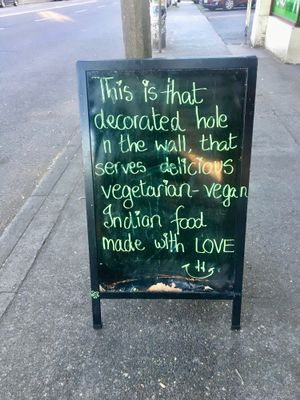 This is that
decorated hole
n the wall, that
serves delicious
vegetarian-vegan
Indian food
made with LOVE